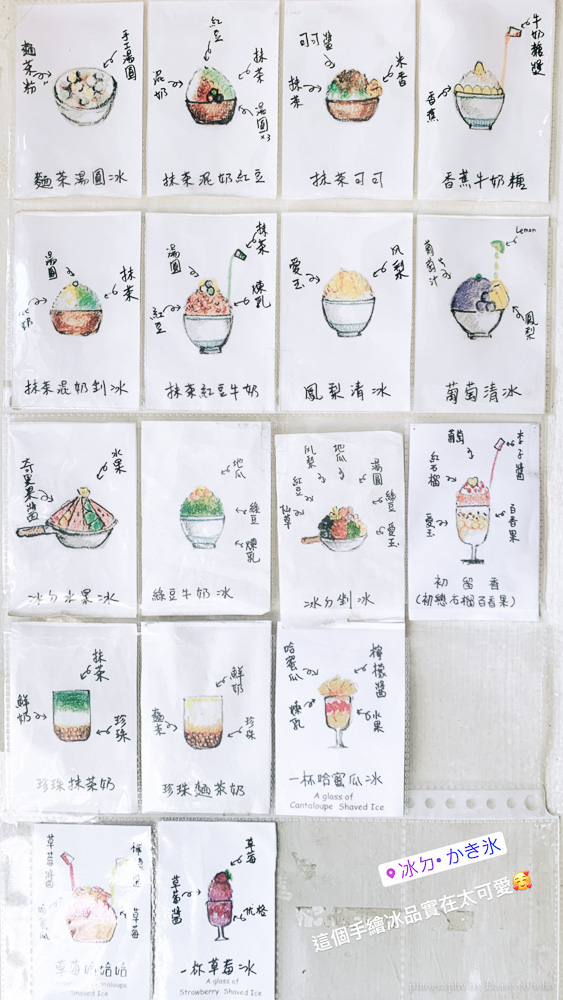 手工湯圓
麵茶粉
麵茶湯圓冰
紅豆
抹茶
混奶
湯圓x3
抹茶混奶紅豆
可可醬
米香
抹茶
抹茶可可
牛奶糖醬
香蕉
香蕉牛奶糖
湯圓
抹茶
抹茶混奶剉冰
抹茶
湯圓
煉乳
紅豆
抹茶紅豆牛奶
愛玉
鳳梨
鳳梨清冰
Lemon
葡萄汁
鳳梨
葡萄清冰
水果
奇異果醬
冰ㄉ水果冰
地瓜
綠豆
煉乳
綠豆牛奶冰
鳳梨
地瓜
湯圓
紅豆
綠豆
仙草
愛玉
冰ㄉ剉冰
葡萄
李子醬
紅石榴
百香果
愛玉
初留香
(初戀石榴百香果)
抹茶
鮮奶
珍珠
珍珠抹茶奶
鮮奶
麵茶
珍珠
珍珠麵茶奶
哈蜜瓜
檸檬醬
煉乳
水果
一杯哈蜜瓜冰
A glass of
Cantaloupe Shaved Ice
草莓醬
草莓
草莓ㄉ哈哈
Shaved Ice
草莓
草莓醬
優格
一杯草莓冰
A glass of
Strawberry Shaved Ice
冰ㄉ•かき氷
這個手繪冰品實在太可愛🥰